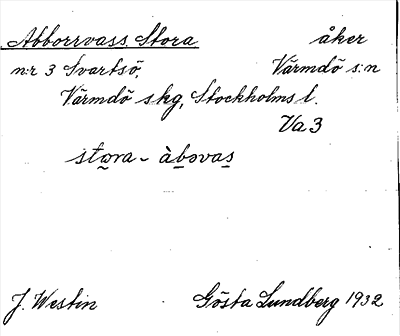 Abborrvass, Stora åker
n:r 3 Svartsö, Värmdö s:n
Värmdö skg, Stockholms l.
Va 3
stωra - àbəvas
J. Westin Gösta Lundberg 1932